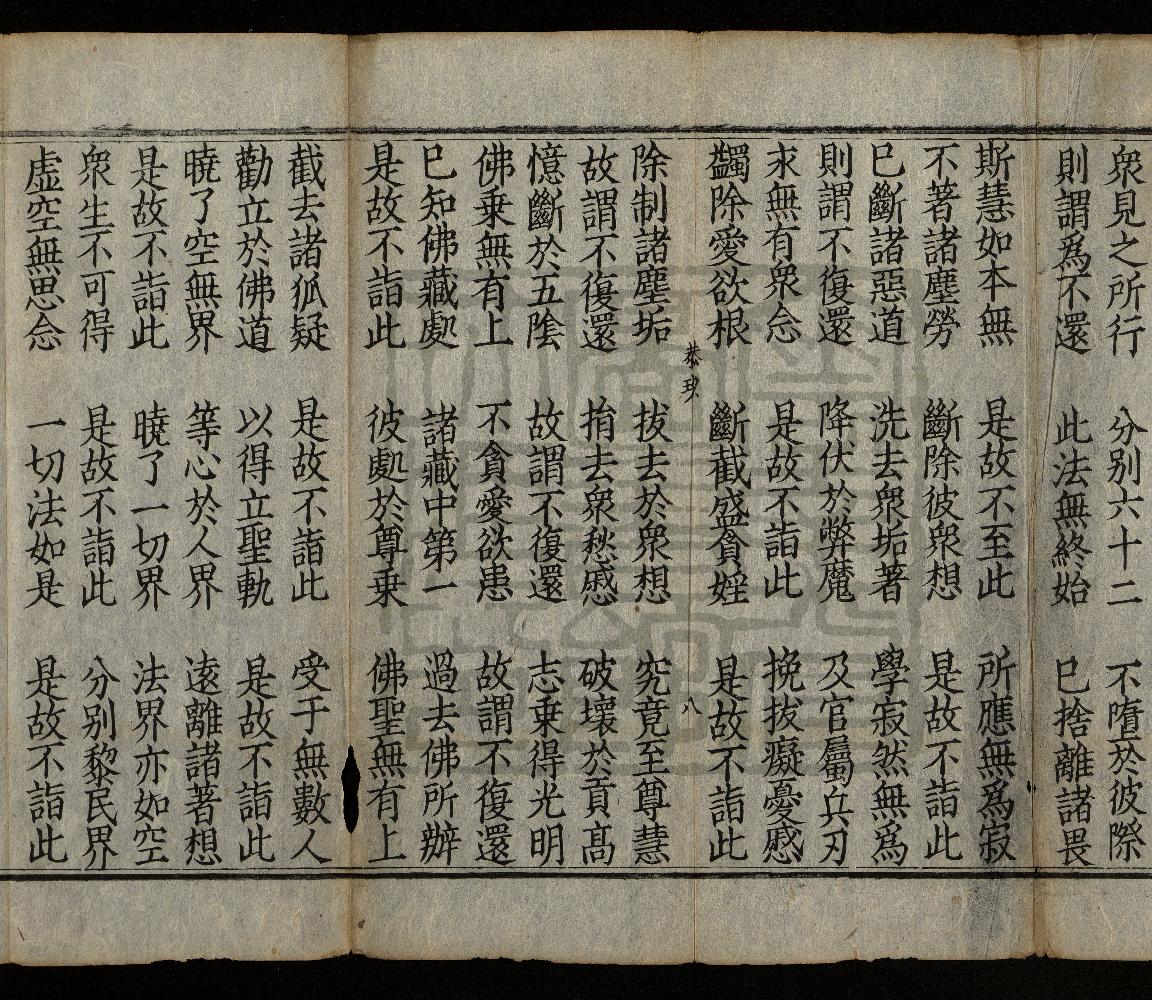 衆見之所行　分别六十二　不墮於彼際
則謂爲不還　此法無終始　已捨離諸畏
斯慧如本無　是故不至此　所應無爲寂
不著諸塵勞　斷除彼衆想　是故不詣此
已斷諸惡道　洗去衆垢著　學寂然無爲
則謂不復還　降伏於弊魔　及官屬兵刃
求無有衆念　是故不詣此　挽拔癡憂慼
蠲除愛欲根　斷截盛貪婬　是故不詣此
恭 八
除制諸塵垢　拔去於衆想　究竟至尊慧
故謂不復還　捐去衆愁慼　破壞於貢高
憶斷於五陰　故謂不復還　志乗得光明
佛乗無有上　不貪愛欲患　故謂不復還
已知佛藏處　諸藏中第一　過去佛所辦
是故不詣此　彼處於尊乗　佛聖無有上
截去諸狐疑　是故不詣此　受于無數人
勸立於佛道　以得立聖軌　是故不詣此
曉了空無界　等心於人界　遠離諸著想
是故不詣此　曉了一切界　法界亦如空
衆生不可得　是故不詣此　分别黎民界
虚空無思念　一切法如是　是故不詣此